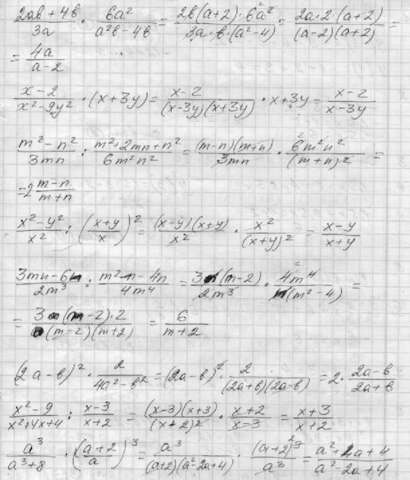 (2ab+4b)/3a · 6a²/(a²b-4b) = 2b(a+2)·6a²/(3a·b·(a²-4)) = 2a·2(a+2)/((a-2)(a+2)) =
= 4a/(a-2)
(x-2)/(x²-9y²) · (x+3y) = (x-2)/((x-3y)(x+3y)) · x+3y = (x-2)/(x-3y)
(m²-n²)/3mn : (m²+2mn+n²)/6m²n² = (m-n)(m+n)/3mn · 6m²n²/(m+n)² =
(m-n)/(m+n)
(x²-y²)/x² : ((x+y)/x)² = (x-y)(x+y)/x² · x²/(x+y)² = (x-y)/(x+y)
/2m³ : /4m⁴ = (m-2)/2m³ · 4m⁴/(m²-4) =
= (m-2)·2/((m-2)(m+2)) = 6/(m+2)
(2a-b)² · 2/(4a²-b²) = (2a-b)² · 2/((2a+b)(2a-b)) = 2· (2a-b)/(2a+b)
(x²-9)/(x²+4x+4) : (x-3)/(x+2) = (x-3)(x+3)/(x+2)² · (x+2)/(x-3) = (x+3)/(x+2)
a³/(a³+8) · ((a+2)/a)³ = a³/((a+2)(a²-2a+4)) · (a+2)/a³ = (a²+2a+4)/(a²-2a+4)